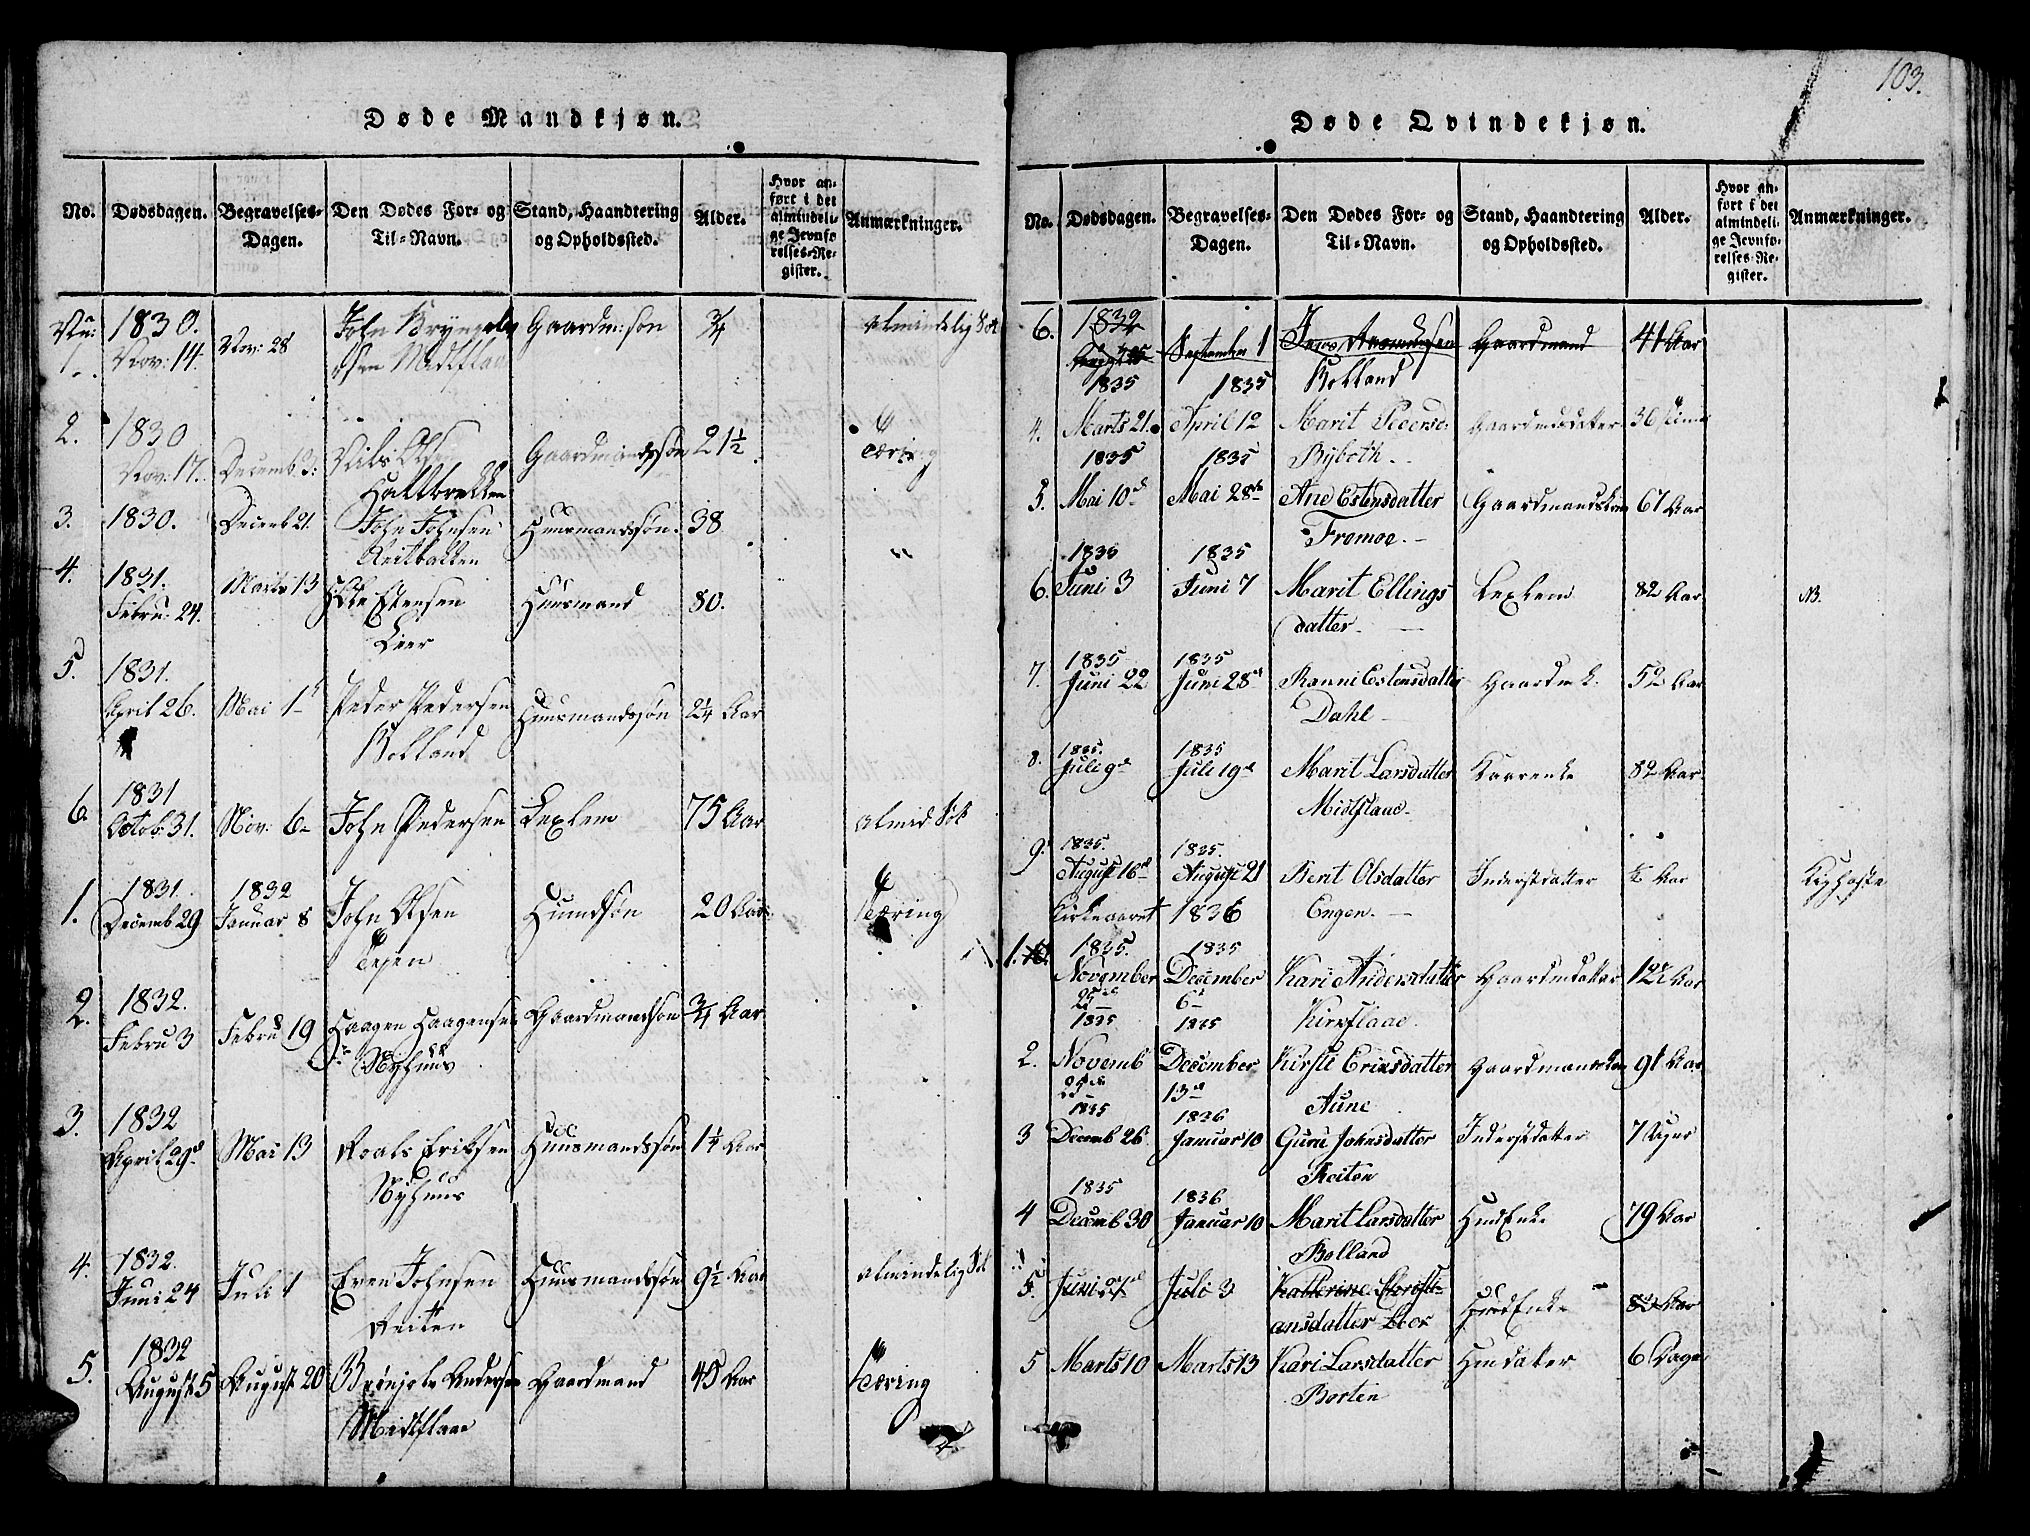 103.
Døde Mandkjøn.
No. Dødsdagen. Begravelses-Dagen. Den Dødes For- og Til-Navn. Stand, Haandtering og Opholdssted. Alder. Hvor anført i det almindelige Jevnførelses-Register. Anmærkninger.
1. 1830. Nov: 14. Nov: 28 John Bryngels
sen Midtflaa Gaardm: søn 3/4 Almindelig
2. 1830 Nov: 17. Decemb 3: Nils Olsen
Haltbrekken Gaardmandssøn 21½ Tæring
3. 1830. Decemb 21. John Johnsen
Reitbakken Huusmandssøn. 38 "
4. 1831. Febru: 24. Marts 13 Estensen
Lier Huusmand 80.
5. 1831. April 26. Mai 1 Peder Pedersen
Bolland Huusmandssøn 2¼ Aar
6. 1831 Octob: 31. Nov: 6 John Pedersen Lexlem 75 Aar Almind Sot
1. 1831. Decemb 29 1832 Januar 8 John Olsen
Huusmdsøn 20 Aar Tæring
2. 1832. Febru 3 Febru 19 Haagen Haagensen
Nyhuus Gaardmandsøn 3/4 Aar
3. 1832 April 29d Mai 13 Roals Eriksen
Nyhuus Huusmandssøn 1¼ Aar
4. 1832. Juni 24 Juli 1 Even Johnsen
Reiten Huusmandssøn 9½ Aar Almindelig
5. 1832 August 5 August 20 Brønjolv Andersen
Midtflaa Gaardmand 45 Aar Tæring
Døde Qvindekjøn.
No. Dødsdagen. Begravelses-Dagen. Den Dødes For- og Til-Navn. Stand, Haandtering og Opholdssted. Alder. Hvor anført i det almindelige Jevnførelses-Register. Anmærkninger.
6. 1832 September 1 Jens
Bolland Gaardmand 41 Aar
4. 1835 Marts 21. 1835 April 12 Marit Pedersd.
Bijboth. Gaardmdsdatter 36
5. 1835 Mai 10d 1835 Mai 28de Ane Estensdatter
Fremoe. Gaardmandskone 67 Aar
6. 1835 Juni 3 1835 Juni 7 Marit Ellings
datter Lexlem 82 Aar NB.
7. 1835 Juni 22 1835 Juni 28d Ranni Estensdatter
Dahl Gaardm k. 52 Aar
8. 1835. Juli 9d 1835 Juli 19d Marit Larsdatter
Midtflaae. Kaarenke 82 Aar
9. 1835. August 16d 1835. August 21 Berit Olsdatter
Engen. Inderstdatter Aar Kighoste
Kirkeaaret 1836
1. 1835. November 25d 1835 December 6d Kari Andersdatter
Kirkflaae. Gaardmdatter Aar
2. 1835 Novemb 25d 1835 December 13d Kirsti Eriksdatter
Aune Gaardmandskone 91 Aar
3 1835 Decemb 26 1836 Januar 10 Guru Johnsdatter
Reiten Inderstdatter 7 Uger
4 1835 Decemb 30 1836 Januar 10 Marit Larsdatter
Bolland HmdEnke 79 Aar
5. Juni Juli 3 Katherine Christi
ansdatter HmdEnke Aar
5 Marts 10 Marts 13 Kari Larsdatter
Borten Hmdatter 6 Dage